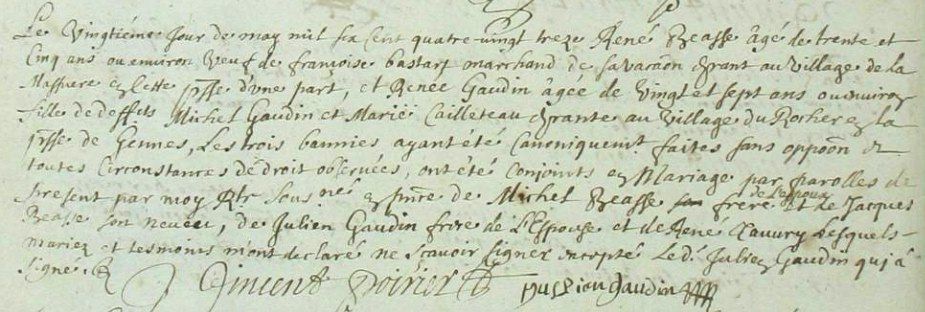 Le Vingtiéme Jour de may mil six cent quatre vingt treze René Beasse âgé de trente et
Cinq ans ou environ Veuf de francoise bastart marchand de sa vacaôn dmrant au Village de la
Massuere en cette psse d'une part, et Renée Gaudin âgée de Vingt et sept ans ou environ
fille de deffts Michel Gaudin et Marie Cailleteau dmrante au Village du Rocher en la
psse de Gennes, Les trois bannies ayant été Canoniquemt faites sans oppôon et
toutes Circonstances de droit observées, ont été Conjoints en Mariage par parolles de
present par moy Rtr sousné en pnce de Michel Beasse frere de L'epoux et de Jacques
Beasse son neveu, de Julien Gaudin frere de L'Espouse et de René Lesquels
mariez et tesmoins m'ont declaré ne scavoir signer excepté Led. Julien Gaudin qui a
signé.
Vincent Poirier Jullian gaudin